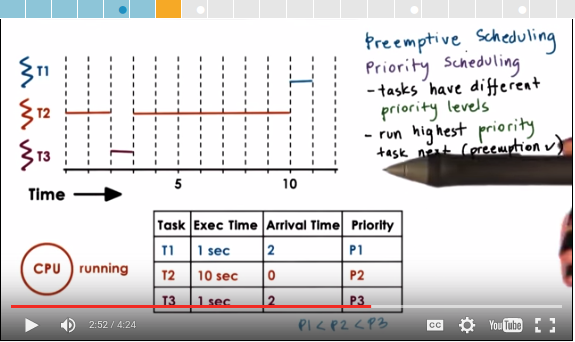 Preemptive Scheduling
Priority Scheduling
- tasks have different
priority levels
- run highest priority
task next (preemption ✓)
T1
T2
T3
5
10
Time
Task Exec Time Arrival Time Priority
T1 1 sec 2 P1
T2 10 sec 0 P2
T3 1 sec 2 P3
CPU running
P1 < P2 < P3
2:52 / 4:24
CC
YouTube